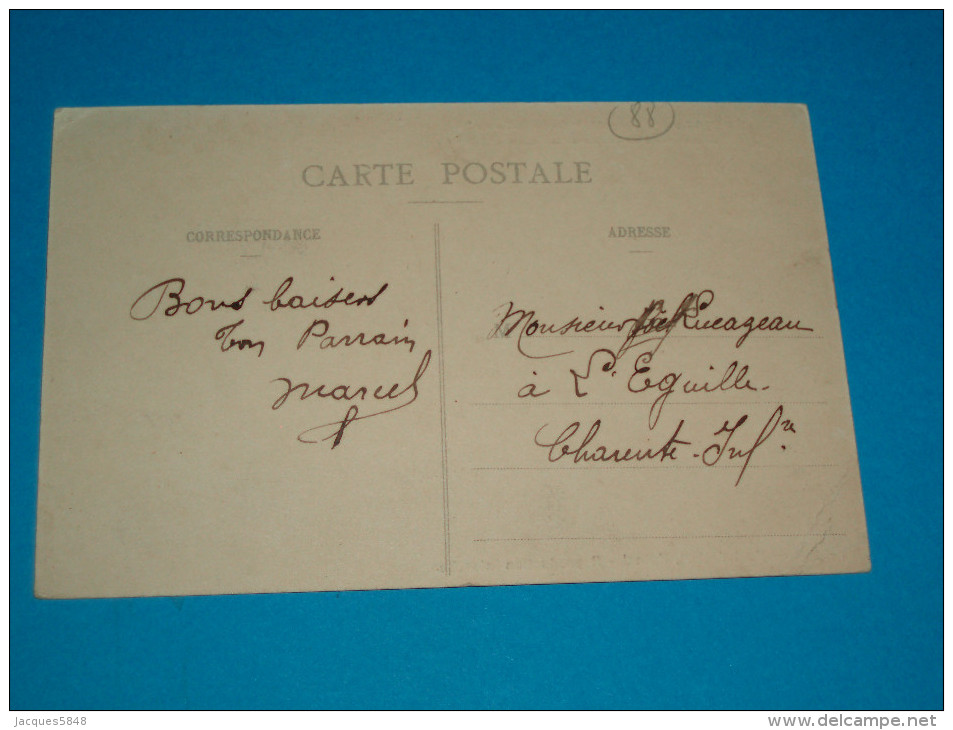 88
CARTE POSTALE
CORRESPONDANCE
Bons baisers
ton Parrain
Marcel
ADRESSE
Monsieur
à L'Eguille.
Charente-Infre
Jacques5848
www.delcampe.net